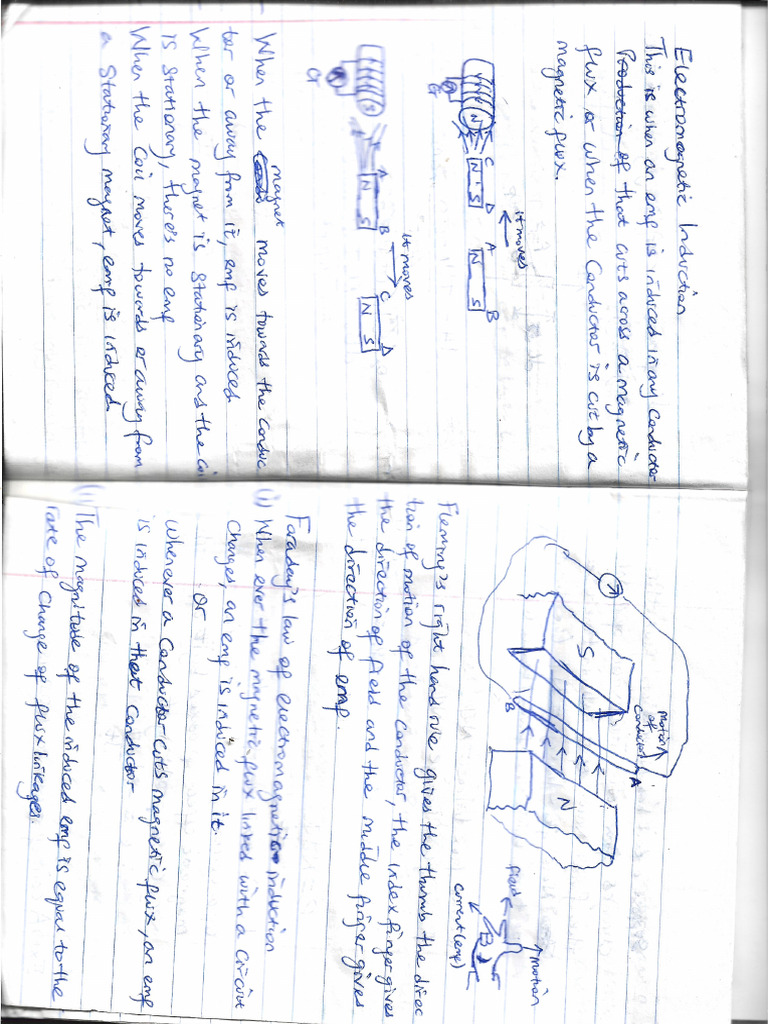 Electromagnetic Induction
This is when an emf is induced in any conductor
Production of that cuts across a magnetic
flux or when the conductor is cut by a
magnetic flux.
It moves
N
C
D
A
B
N S
N S
G
It moves
S
A
B
C
D
N S
N S
G
magnet
- When the moves towards the conduc
tor or away from it, emf is induced
- When the magnet is stationary and the coi
is stationary, there's no emf
When the coil moves towards or away from
a stationary magnet, emf is induced
motion
of
conductor
A
S
N
B
motion
field
current (emf)
Fleming's right hand rule gives the thumb the direc
tion of motion of the conductor, the index finger gives
the direction of field and the middle finger gives
the direction of emf.
Faraday's law of electromagnetic induction
(i) When ever the magnetic flux linked with a circuit
changes, an emf is induced in it.
or
whenever a conductor cuts magnetic flux, an emf
is induced in that conductor
(ii) The magnitude of the induced emf is equal to the
rate of change of flux linkages.